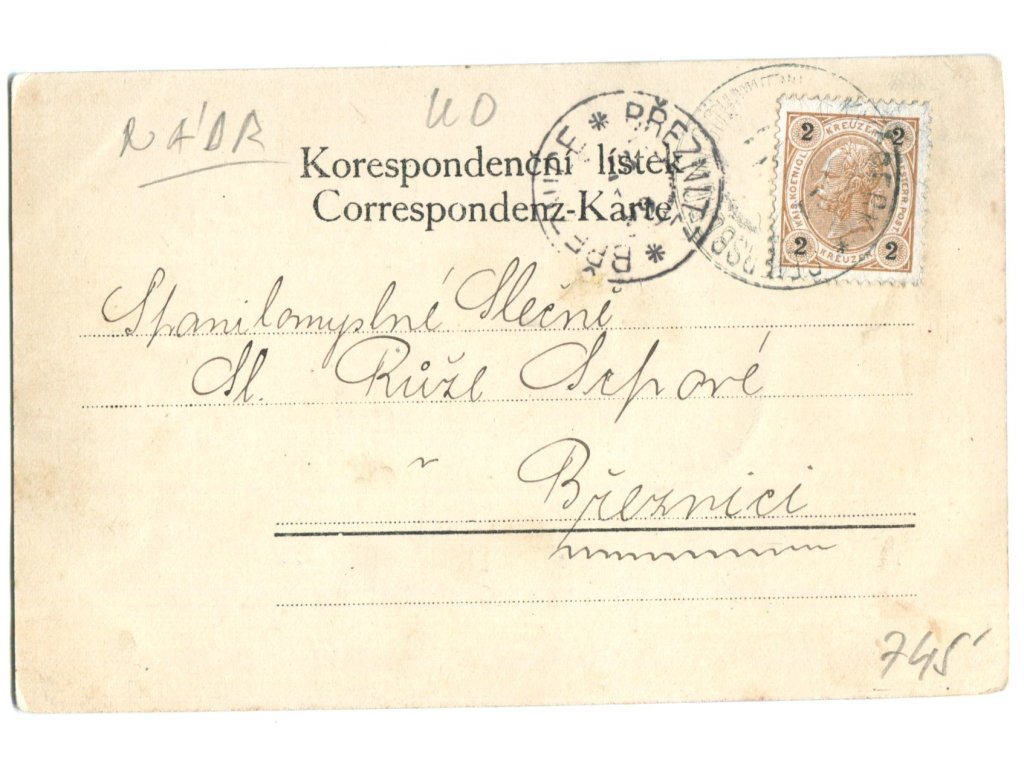 NÁDR
UO
Korespondenční lístek
Correspondenz-Karte
BŘEZNICE * BŘEZNITZ *
2 KREUZER 2
KAIS. KOENIGL. OESTERR. POST.
2 KREUZER 2
Spanilomyslné Slečně
Sl. Růže
v Březnici
745